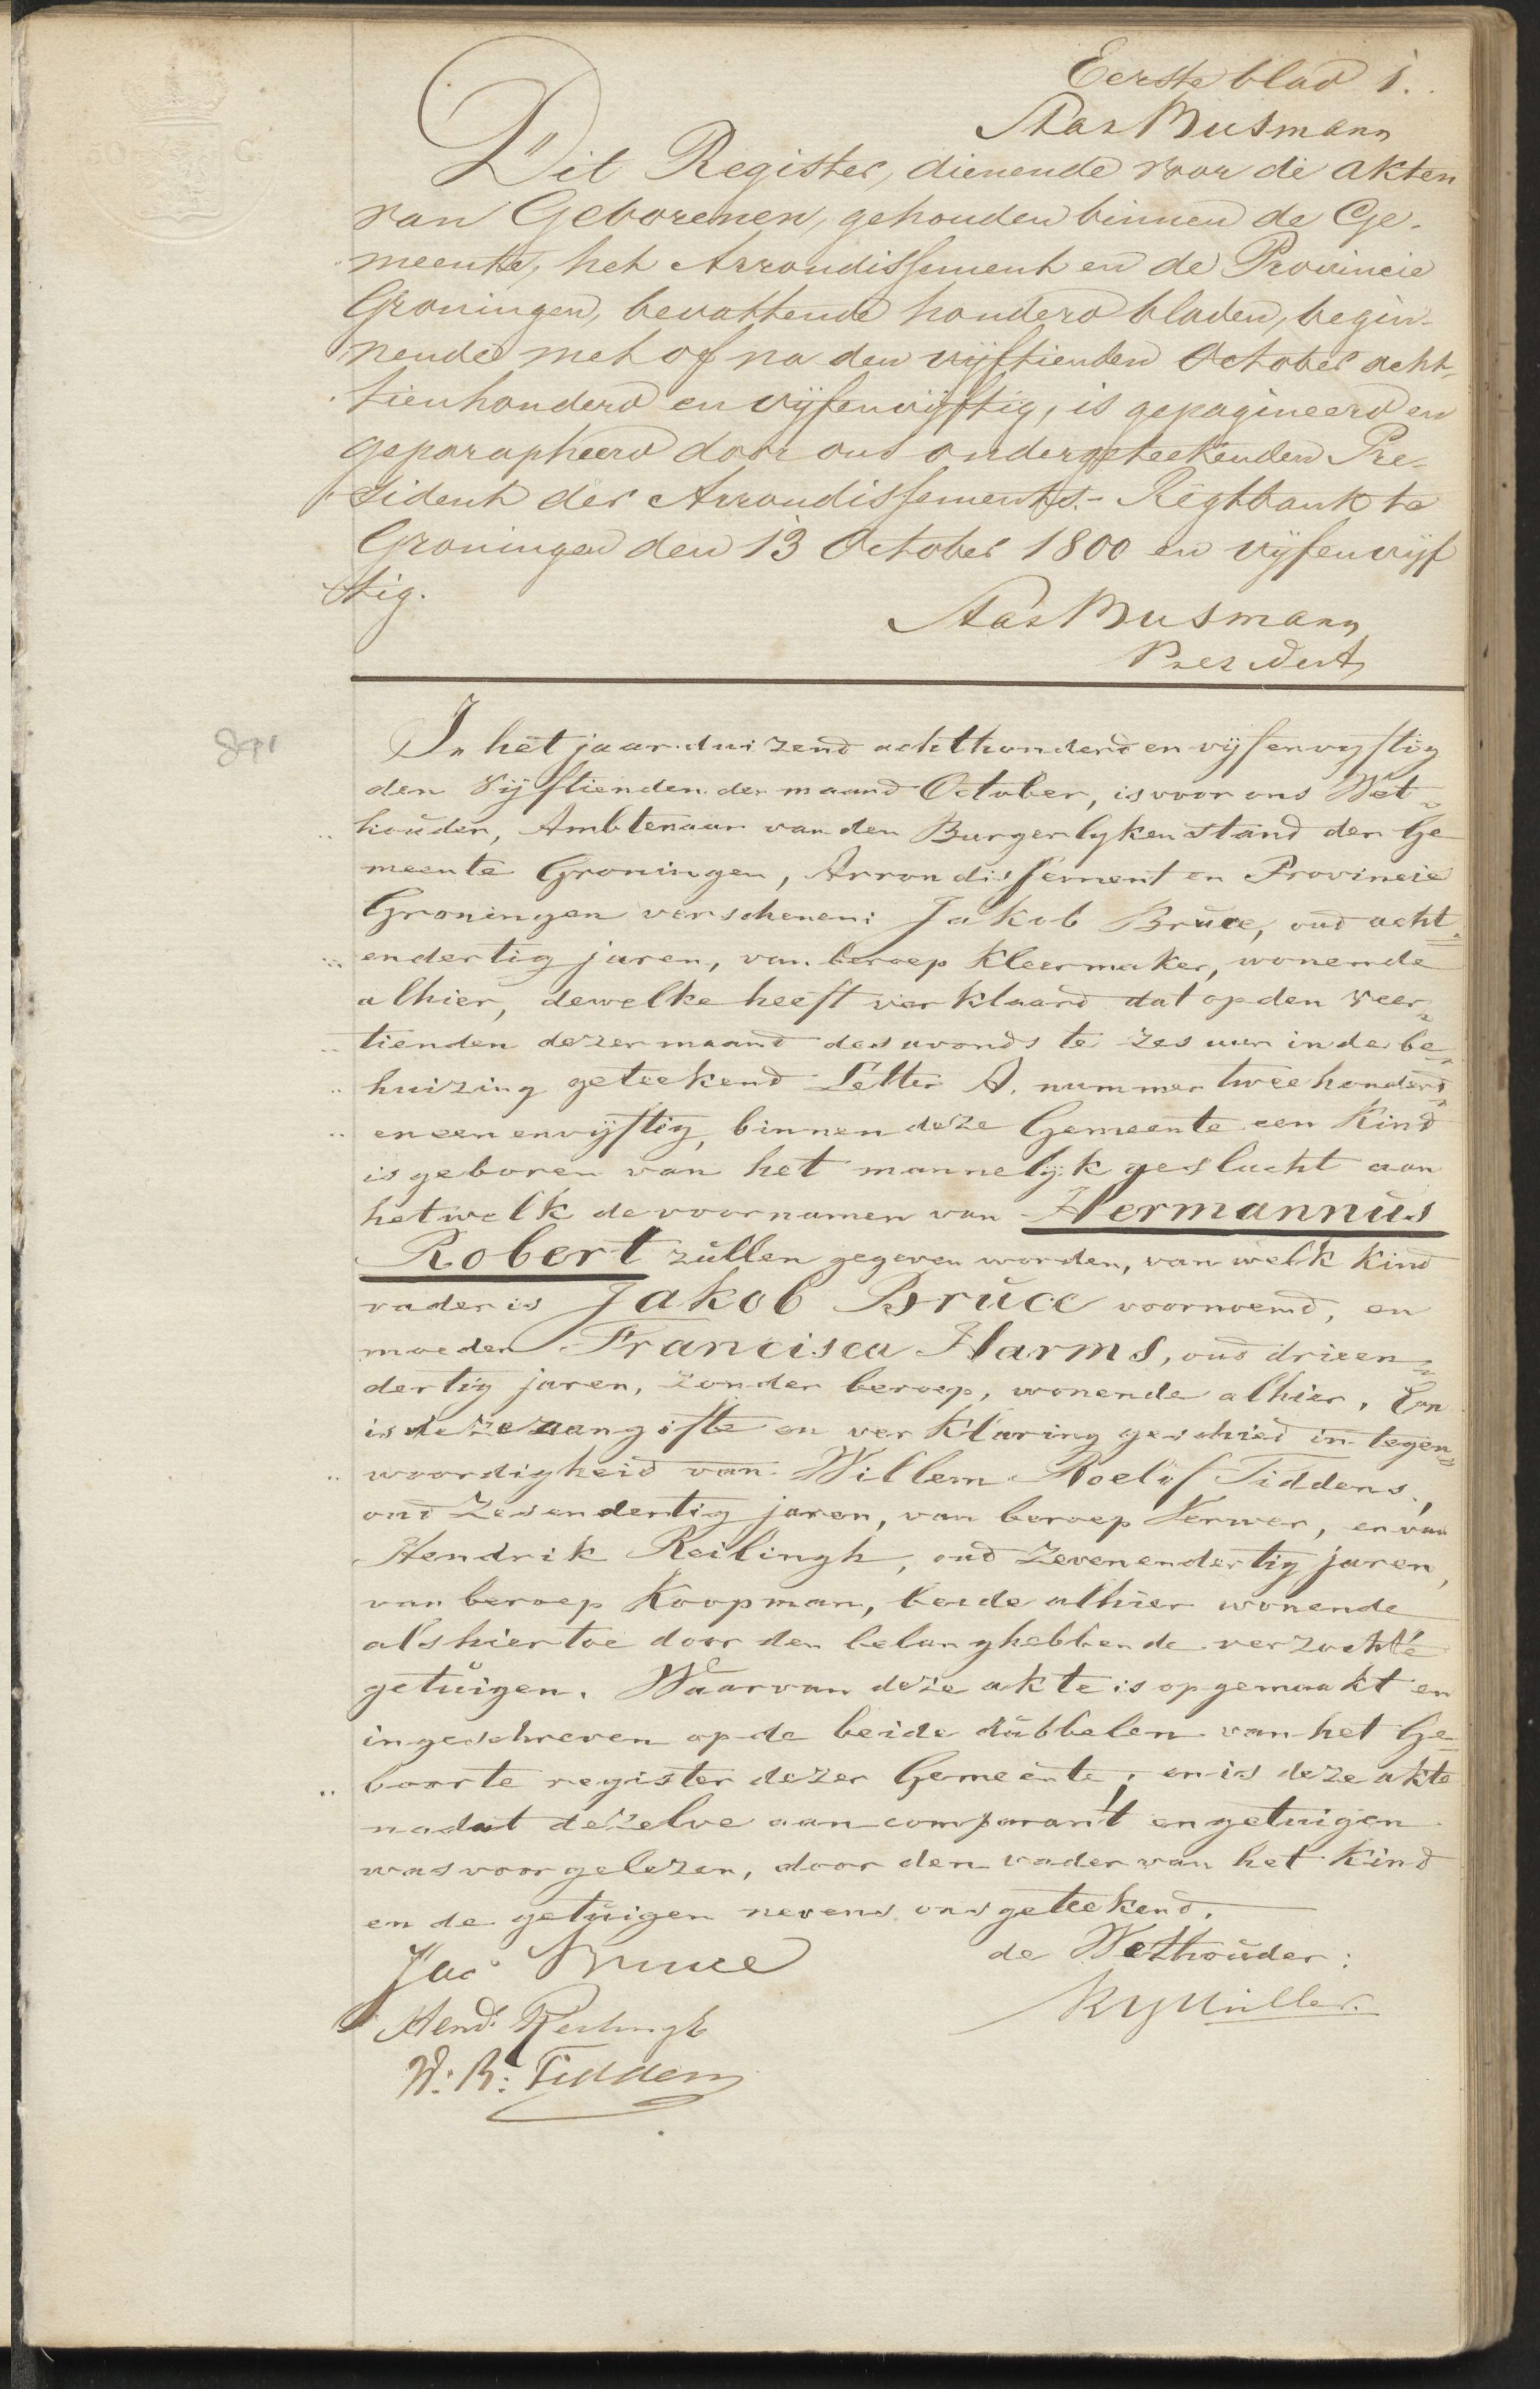 Eerste blad 1.
Busmann
Dit Register, dienende voor de akten
van Geborenen, gehouden binnen de Ge-
meente, het Arrondissement en de Provincie
Groningen, bevattende honderd bladen, begin-
nende met of na den vijftienden October acht-
tienhonderd en vijfenvijftig, is gepagineerd en
geparapheerd door ons ondergeteekenden Pre-
sident der Arrondissements-Regtbank te
Groningen den 13 October 1800 en vijfenvijf
tig.
Busmann
President
871
In het jaar duizend achthonderd en vijfenvyftig
den Vijftienden der maand October, is voor ons Wet-
houder, Ambtenaar van den Burgerlyken Stand der Ge
meente Groningen, Arrondissement en Provincie
Groningen verschenen: Jakob Brúce, oud acht-
endertig jaren, van beroep Kleermaker, wonende
alhier, dewelke heeft verklaard dat op den veer-
tienden dezer maand des avonds te zes uur in de be-
huizing geteekend Letter A. nummer twee honderd
en een envijftig, binnen deze Gemeente een Kind
is geboren van het mannelijk geslacht aan
hetwelk de voornamen van Hermannús
Robert zúllen gegeven worden, van welk Kind
vader is Jakob Brúce voornoemd, en
moeder Francisca Harms, oud drieen-
dertig jaren, zonder beroep, wonende alhier. En
is deze aangifte en verklaring geschied in tegen-
woordigheid van Willem Roelof Tiddens,
oud Zesendertig jaren, van beroep Verwer, en van
Hendrik Reilingh, oud Zevenendertig jaren,
van beroep Koopman, beide alhier wonende
als hiertoe door den belanghebbende verzochte
getúigen. Waarvan deze akte is opgemaakt en
ingeschreven op de beide dúbbelen van het Ge-
boorte register dezer Gemeente, en is deze akte
nadat dezelve aan comparant en getuigen
was voorgelezen, door den vader van het Kind
en de getúigen nevens ons geteekend.
Jac Bruce
de Wethoúder:
Hend. Reilingh
Müller.
W: R: Tiddens